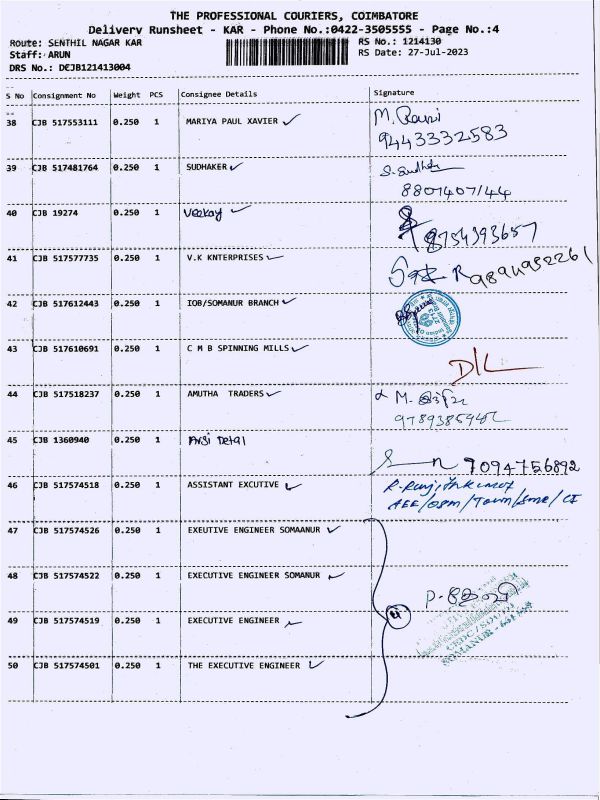 THE PROFESSIONAL COURIERS, COIMBATORE
Delivery Runsheet - KAR - Phone No.:0422-3505555 - Page No.:4
Route: SENTHIL NAGAR KAR RS No.: 1214130
Staff: ARUN RS Date: 27-Jul-2023
DRS No.: DEJB121413004
S No Consignment No Weight PCS Consignee Details Signature
38 CJB 517553111 0.250 1 MARIYA PAUL XAVIER ✓ M. Rani
9443332583
39 CJB 517481764 0.250 1 SUDHAKER ✓ S. Sudha
8807407144
40 CJB 19274 0.250 1 Veekay ✓
8754393657
41 CJB 517577735 0.250 1 V.K KNTERPRISES ✓
42 CJB 517612443 0.250 1 IOB/SOMANUR BRANCH ✓
43 CJB 517610691 0.250 1 C M B SPINNING MILLS ✓
D/L
44 CJB 517518237 0.250 1 AMUTHA TRADERS ✓ M.
45 CJB 1360940 0.250 1 Arsi
9094756892
46 CJB 517574518 0.250 1 ASSISTANT EXCUTIVE ✓ R. Ranjithkumar
AEE/O&M/Town/SMR/CI
47 CJB 517574526 0.250 1 EXEUTIVE ENGINEER SOMAANUR ✓
48 CJB 517574522 0.250 1 EXECUTIVE ENGINEER SOMANUR ✓
P.
49 CJB 517574519 0.250 1 EXECUTIVE ENGINEER ✓
CEDC/SOUTH
SOMANUR
50 CJB 517574501 0.250 1 THE EXECUTIVE ENGINEER ✓